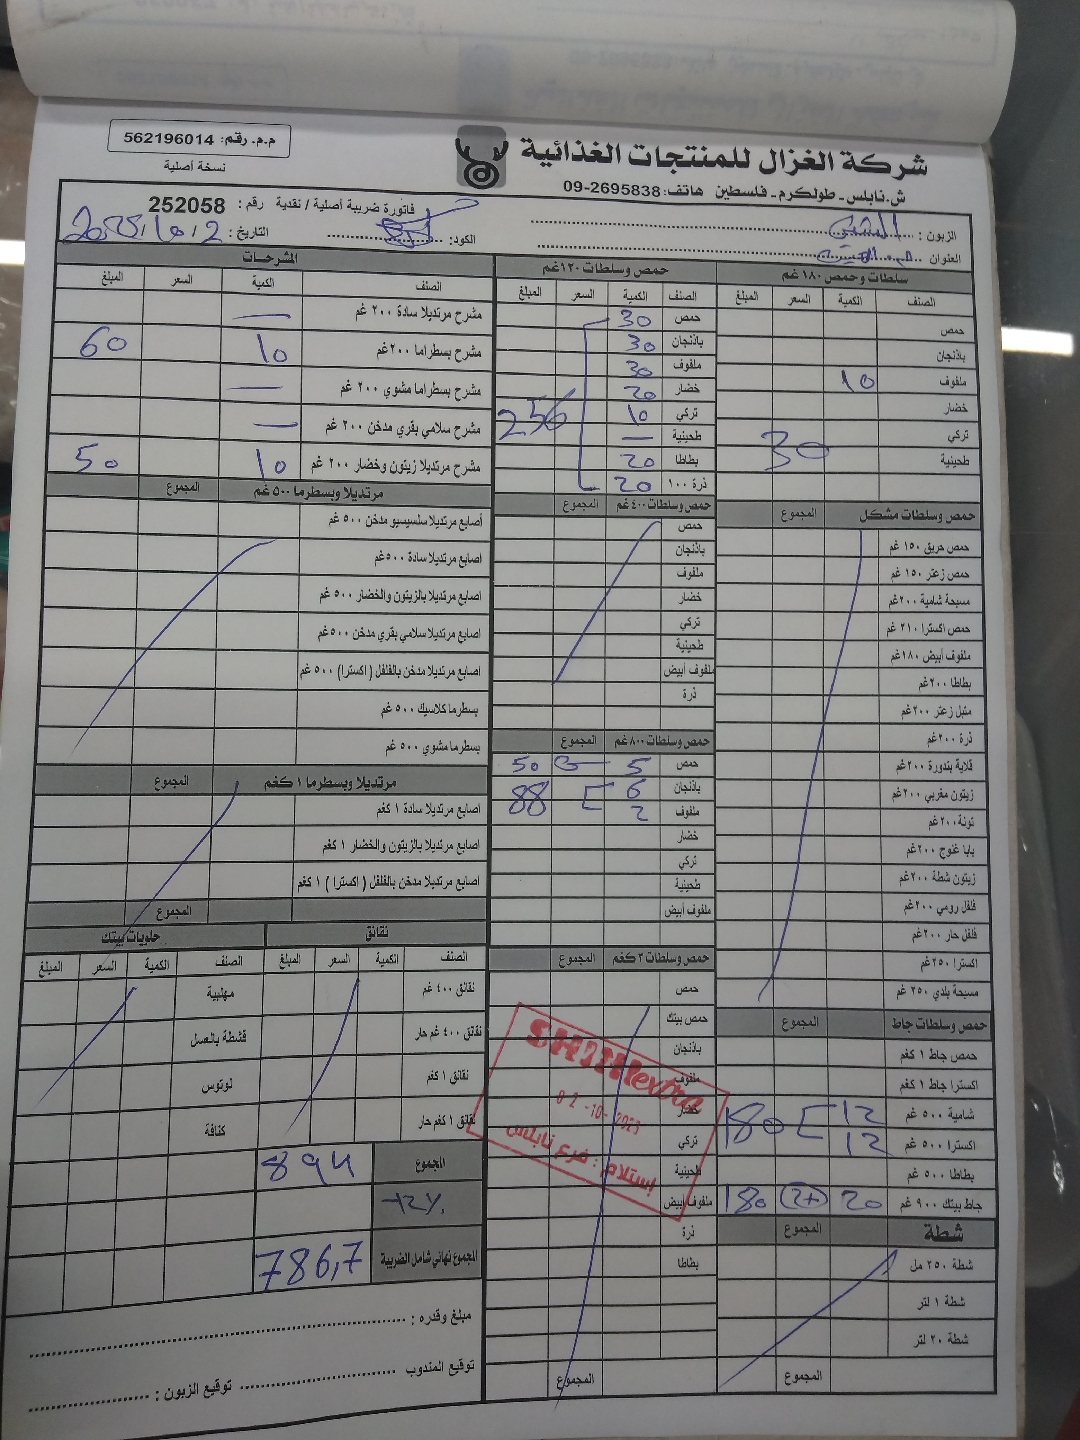 شركة الغزال للمنتجات الغذائية
ش.نابلس - طولكرم - فلسطين هاتف: 09-2695838
م.م. رقم: 562196014
نسخة أصلية
فاتورة ضريبة أصلية / نقدية رقم: 252058
الزبون:
العنوان
الكود:
التاريخ:
سلطات وحمص ١٨٠ غم
الصنف الكمية السعر المبلغ
حمص
باذنجان
ملفوف 10
خضار
تركي
طحينية
30
حمص وسلطات مشكل المجموع
حمص حريق ١٥٠ غم
حمص زعتر ١٥٠ غم
مسبحة شامية ٢٠٠غم
حمص اكسترا ٢١٠ غم
ملفوف أبيض ١٨٠غم
بطاطا ٢٠٠غم
متبل زعتر ٢٠٠غم
ذرة ٢٠٠غم
قلاية بندورة ٢٠٠غم
زيتون مغربي ٢٠٠غم
تونة ٢٠٠غم
بابا غنوج ٢٠٠غم
زيتون شطة ٢٠٠غم
فلفل رومي ٢٠٠غم
فلفل حار ٢٠٠غم
اكسترا ٢٥٠غم
مسبحة بلدي ٢٥٠ غم
حمص وسلطات جاط المجموع
حمص جاط ١ كغم
اكسترا جاط ١ كغم
شامية ٥٠٠ غم 12
اكسترا ٥٠٠ غم 12
180
بطاطا ٥٠٠ غم
جاط بيتك ٩٠٠ غم 20 2+ 180
شطة المجموع
شطة ٢٥٠ مل
شطة ١ لتر
شطة ٢٠ لتر
المجموع
حمص وسلطات ١٢٠غم
الصنف الكمية السعر المبلغ
حمص 30
باذنجان 30
ملفوف 30
خضار 20
تركي 10
طحينية —
بطاطا 20
ذرة ١٠٠ 20
256
حمص وسلطات ٤٠٠غم المجموع
حمص
باذنجان
ملفوف
خضار
تركي
طحينية
ملفوف أبيض
ذرة
حمص وسلطات ٨٠٠غم المجموع
حمص 5 50
باذنجان 6
ملفوف 2
88
خضار
تركي
طحينية
ملفوف أبيض
حمص وسلطات ٣كغم المجموع
حمص
حمص بيتك
باذنجان
ملفوف
خضار
تركي
طحينية
ملفوف أبيض
ذرة
بطاطا
المجموع
المشرحات
الصنف الكمية السعر المبلغ
مشرح مرتديلا سادة ٢٠٠ غم —
مشرح بسطراما ٢٠٠غم 10 60
مشرح بسطراما مشوي ٢٠٠ غم —
مشرح سلامي بقري مدخن ٢٠٠ غم —
مشرح مرتديلا زيتون وخضار ٢٠٠ غم 10 50
مرتديلا وبسطرما ٥٠٠ غم المجموع
أصابع مرتديلا سلسيسيو مدخن ٥٠٠ غم
اصابع مرتديلا سادة ٥٠٠غم
اصابع مرتديلا بالزيتون والخضار ٥٠٠ غم
اصابع مرتديلا سلامي بقري مدخن ٥٠٠غم
اصابع مرتديلا مدخن بالفلفل (اكسترا) ٥٠٠ غم
بسطرما كلاسيك ٥٠٠ غم
بسطرما مشوي ٥٠٠ غم
مرتديلا وبسطرما ١ كغم المجموع
اصابع مرتديلا سادة ١ كغم
اصابع مرتديلا بالزيتون والخضار ١ كغم
اصابع مرتديلا مدخن بالفلفل (اكسترا) ١ كغم
المجموع
نقانق
الصنف الكمية السعر المبلغ
نقانق ٤٠٠ غم
نقانق ٤٠٠ غم حار
نقانق ١ كغم
نقانق ١ كغم حار
حلويات بيتك
الصنف الكمية السعر المبلغ
مهلبية
قشطة بالعسل
لوتوس
كنافة
المجموع 894
-12%
المجموع نهائي شامل الضريبة 786,7
مبلغ وقدره:
توقيع المندوب
توقيع الزبون:
SHINI extra
02-10-
إستلام: فرع نابلس